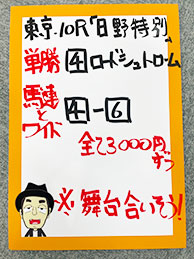 東京.10R「日野特別」
単勝 4 ロードシュトローム
馬連とワイド 4-6
全て3000円ずつ
※舞台合いそう!